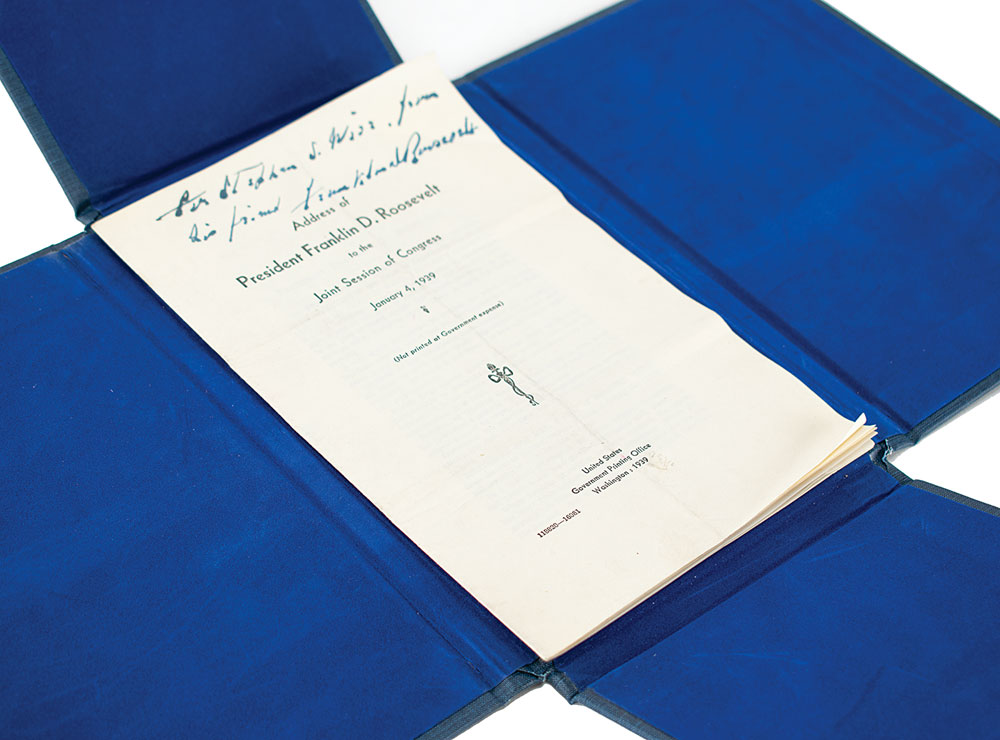 For Stephen S. Wise, from
his friend Franklin D Roosevelt
Address of
President Franklin D. Roosevelt
to the
Joint Session of Congress
January 4, 1939
(Not printed at Government expense)
United States
Government Printing Office
Washington : 1939
110820—16081